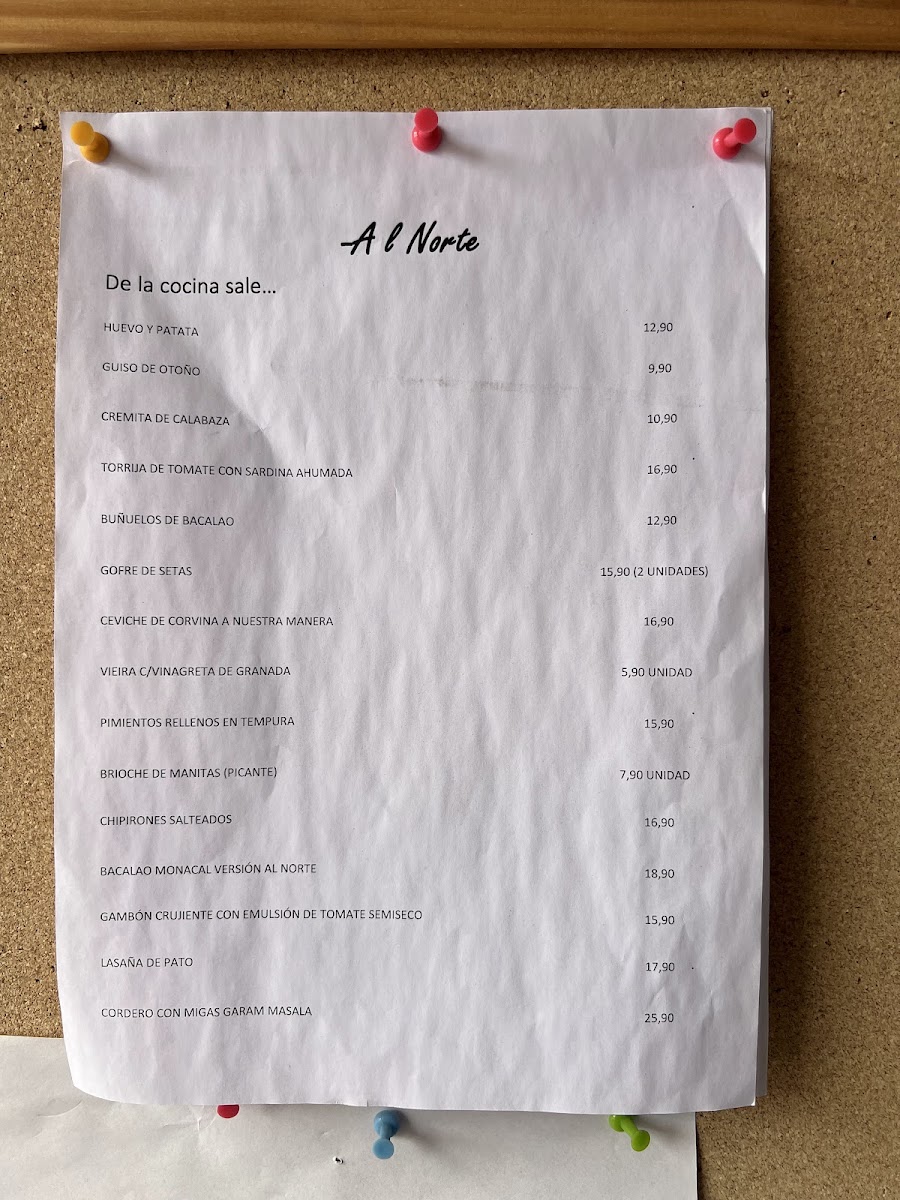 Al Norte
De la cocina sale...
HUEVO Y PATATA 12,90
GUISO DE OTOÑO 9,90
CREMITA DE CALABAZA 10,90
TORRIJA DE TOMATE CON SARDINA AHUMADA 16,90
BUÑUELOS DE BACALAO 12,90
GOFRE DE SETAS 15,90 (2 UNIDADES)
CEVICHE DE CORVINA A NUESTRA MANERA 16,90
VIEIRA C/VINAGRETA DE GRANADA 5,90 UNIDAD
PIMIENTOS RELLENOS EN TEMPURA 15,90
BRIOCHE DE MANITAS (PICANTE) 7,90 UNIDAD
CHIPIRONES SALTEADOS 16,90
BACALAO MONACAL VERSIÓN AL NORTE 18,90
GAMBÓN CRUJIENTE CON EMULSIÓN DE TOMATE SEMISECO 15,90
LASAÑA DE PATO 17,90
CORDERO CON MIGAS GARAM MASALA 25,90